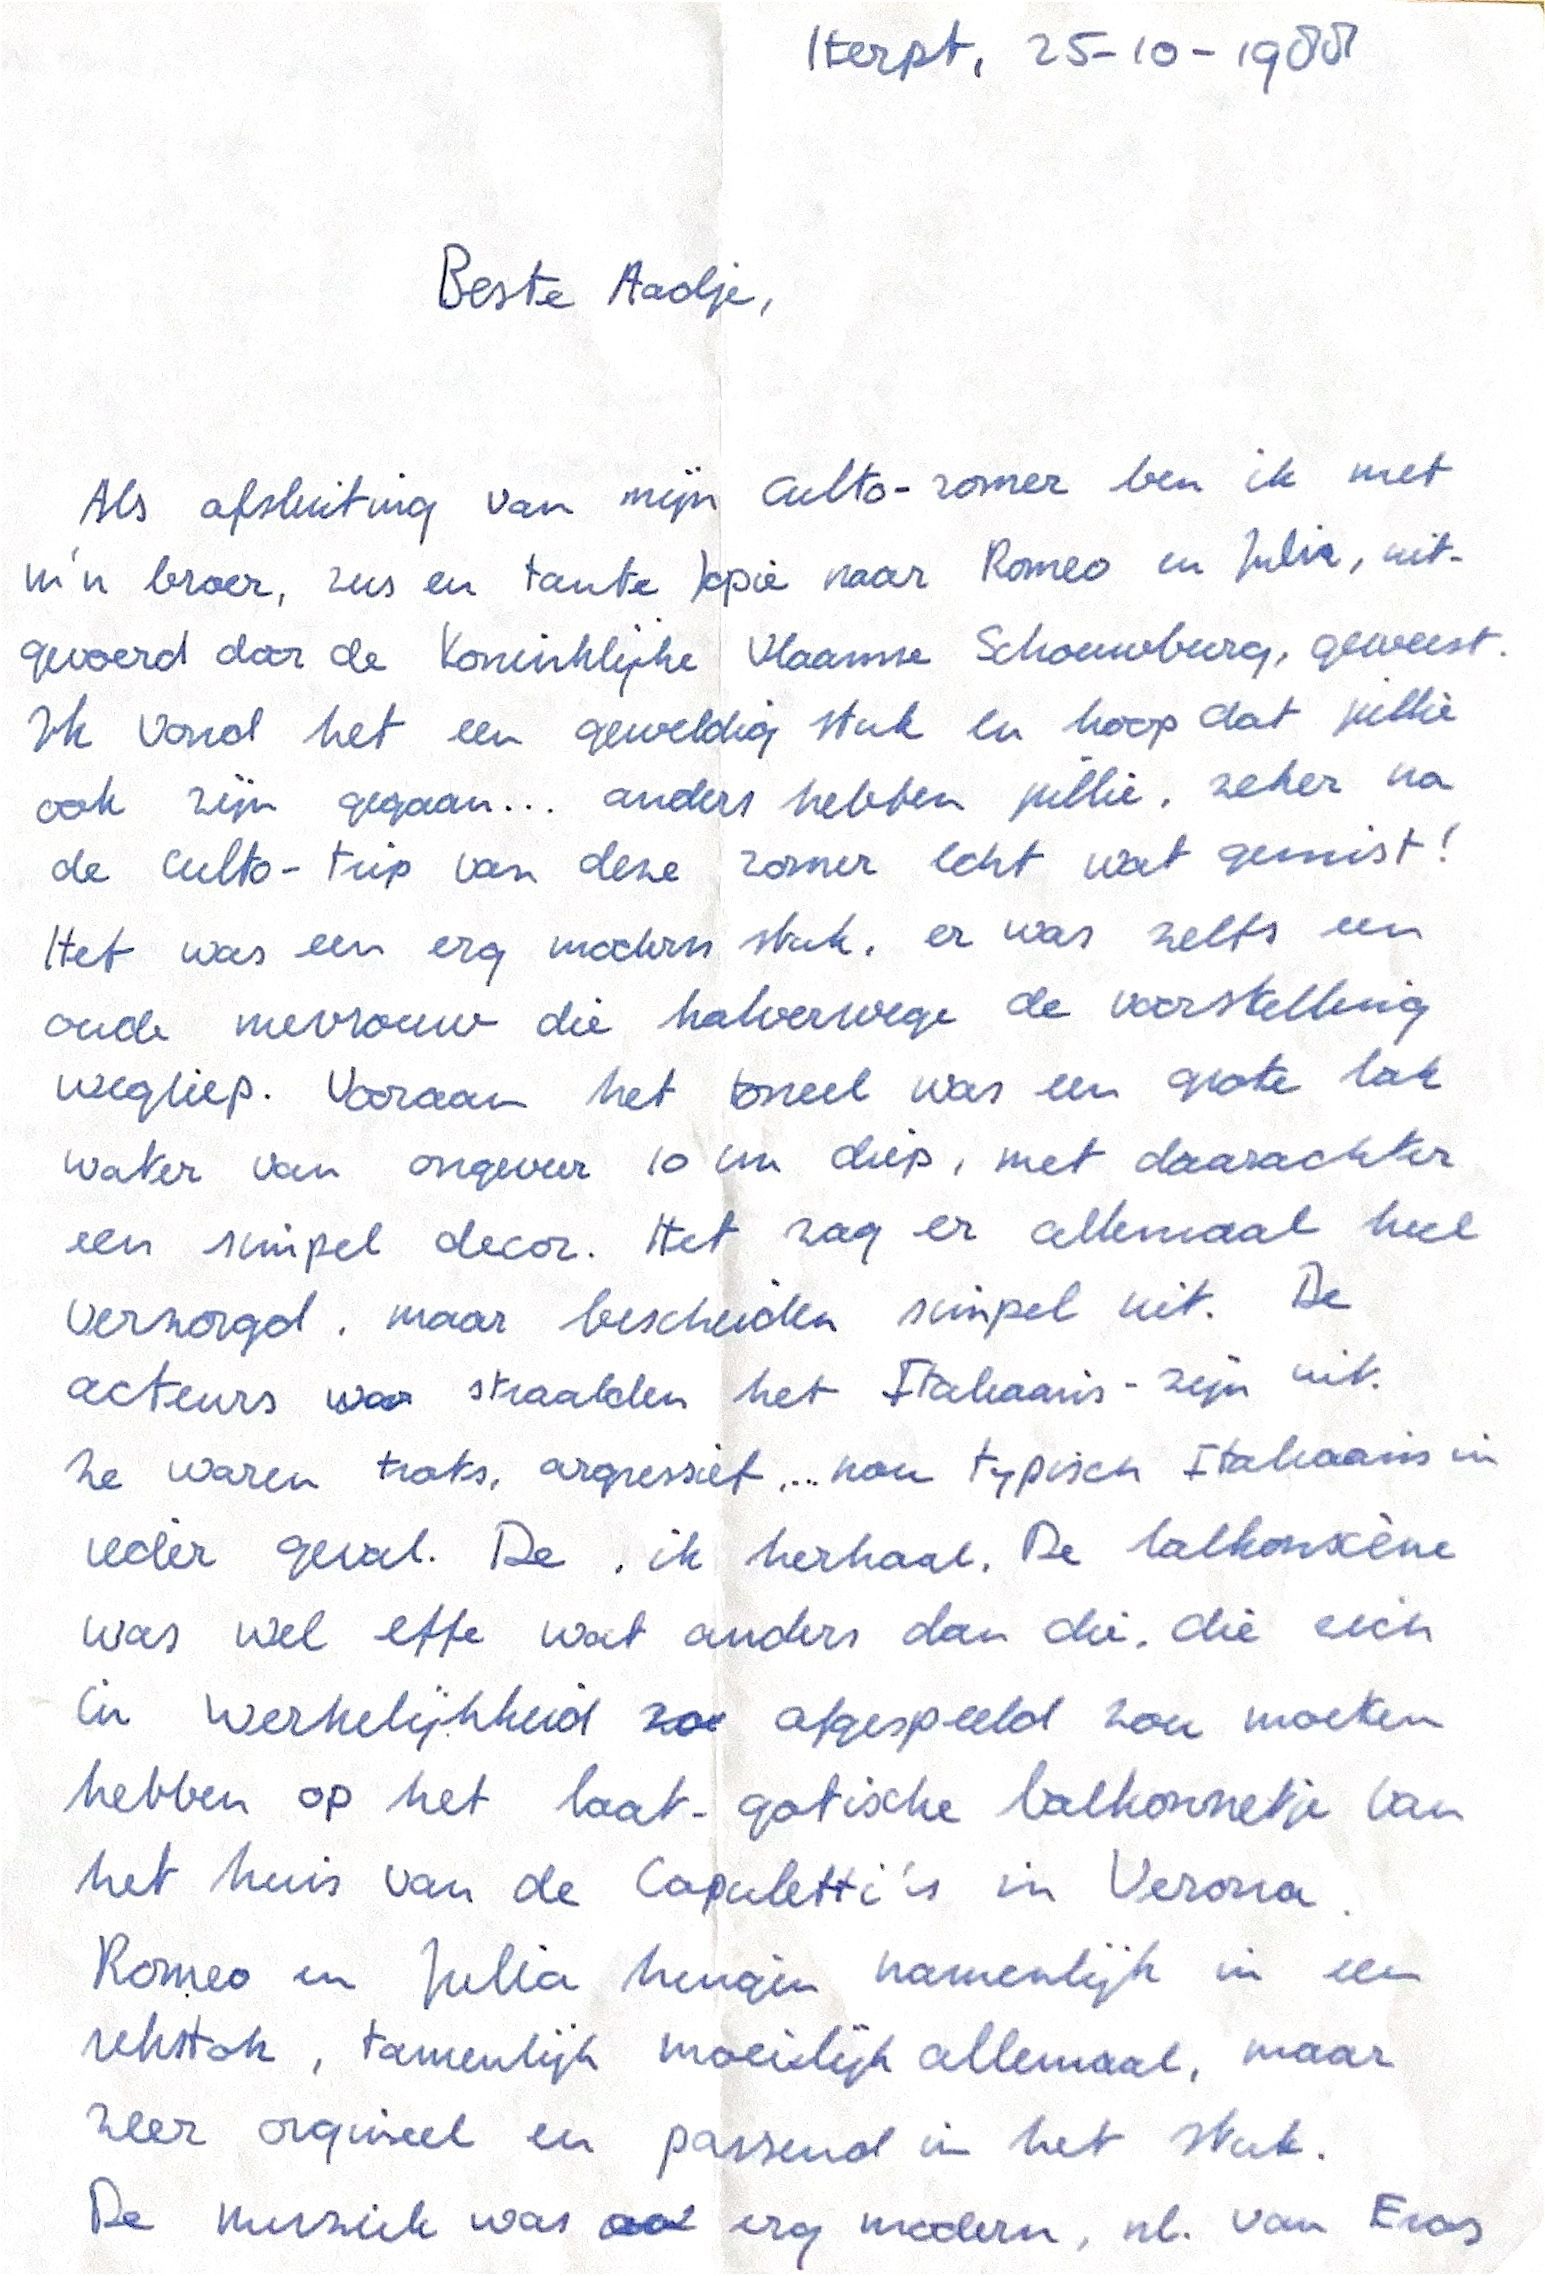 Herpt, 25-10-1988
Beste Aadje,
Als afsluiting van mijn culto-zomer ben ik met
m'n broer, zus en tante Jopie naar Romeo en Julia, uit-
gevoerd door de Koninklijke Vlaamse Schouwburg, geweest.
Ik vond het een geweldig stuk en hoop dat jullie
ook zijn gegaan... anders hebben jullie, zeker na
de culto-trip van deze zomer echt wat gemist!
Het was een erg modern stuk, er was zelfs een
oude mevrouw die halverwege de voorstelling
wegliep. Vooraan het toneel was een grote bak
water van ongeveer 10 cm diep, met daarachter
een simpel decor. Het zag er allemaal heel
verzorgd, maar bescheiden simpel uit. De
acteurs straalden het Italiaans-zijn uit.
Ze waren trots, argressief,... nou typisch Italiaans in
ieder geval. De, ik herhaal, De balkonscène
was wel effe wat anders dan die, die zich
in werkelijkheid afgespeeld zou moeten
hebben op het laat-gotische balkonnetje van
het huis van de Capuletti's in Verona.
Romeo en Julia hingen namenlijk in een
rekstok, tamenlijk moeilijk allemaal, maar
zeer orgineel en passend in het stuk.
De muziek was erg modern, nl. van Eros